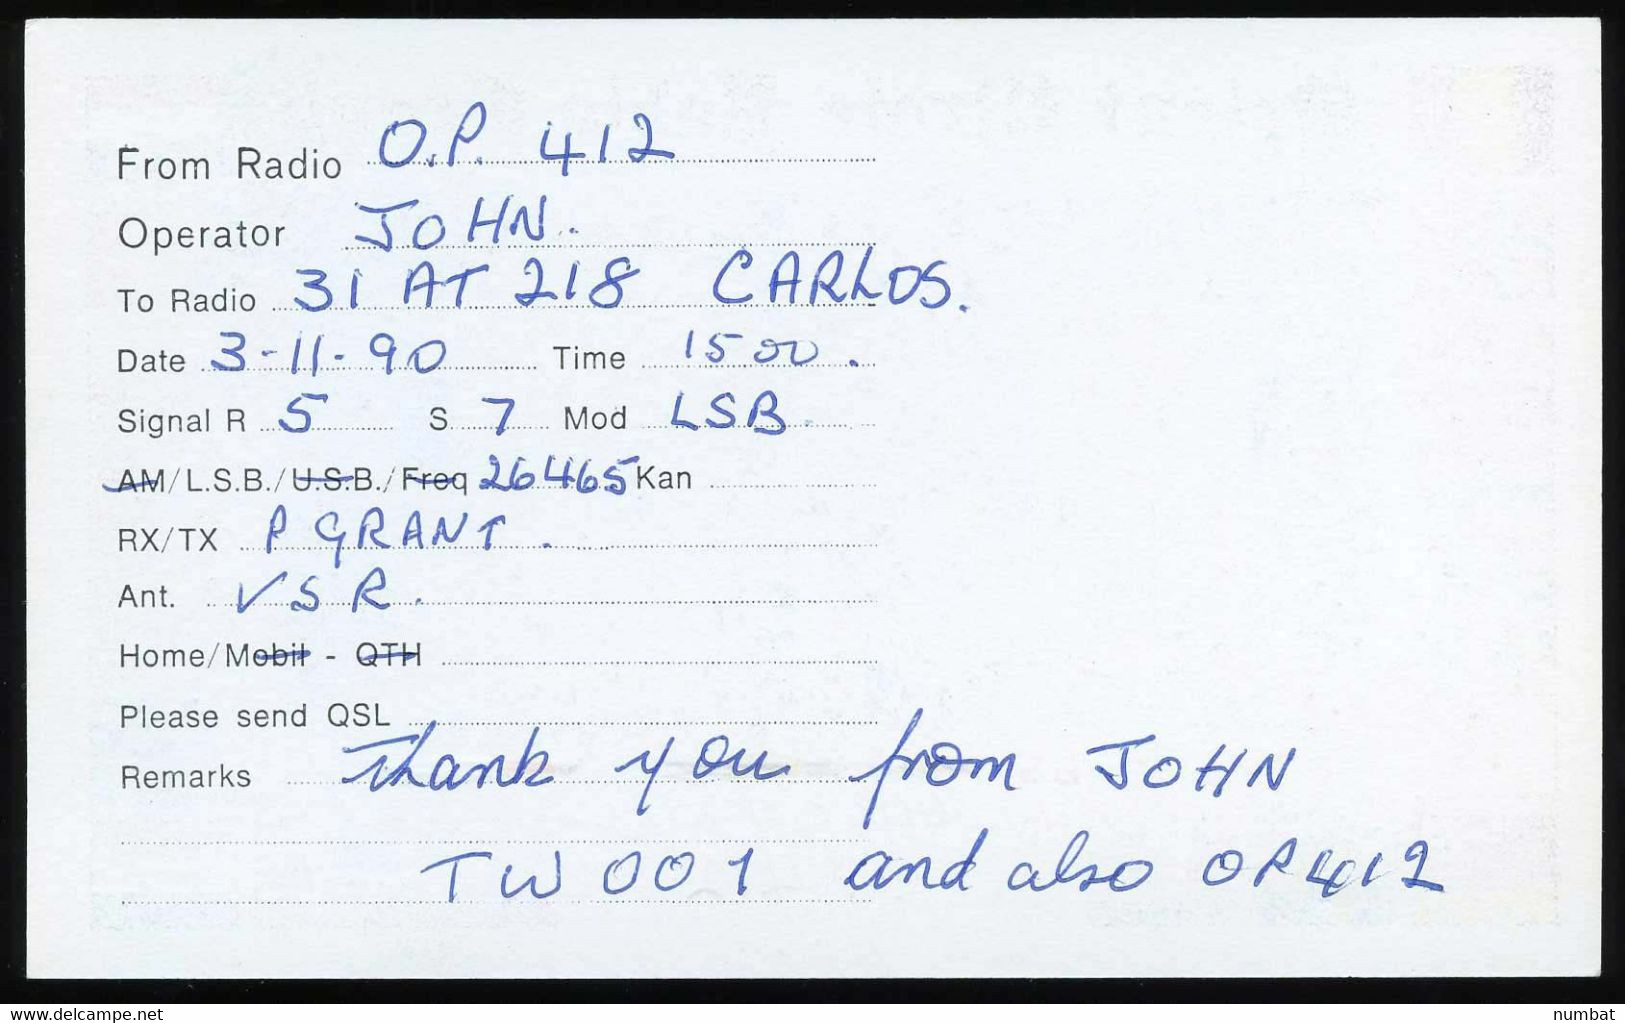 From Radio O.P. 412
Operator JOHN.
To Radio 31 AT 218 CARLOS.
Date 3-11-90 Time 1500.
Signal R 5 S 7 Mod LSB.
AM/L.S.B./U.S.B./Freq 26465 Kan
RX/TX P GRANT.
Ant. VSR.
Home/Mobil - QTH
Please send QSL
Remarks Thank you from JOHN
TW 001 and also OP412
www.delcampe.net
numbat